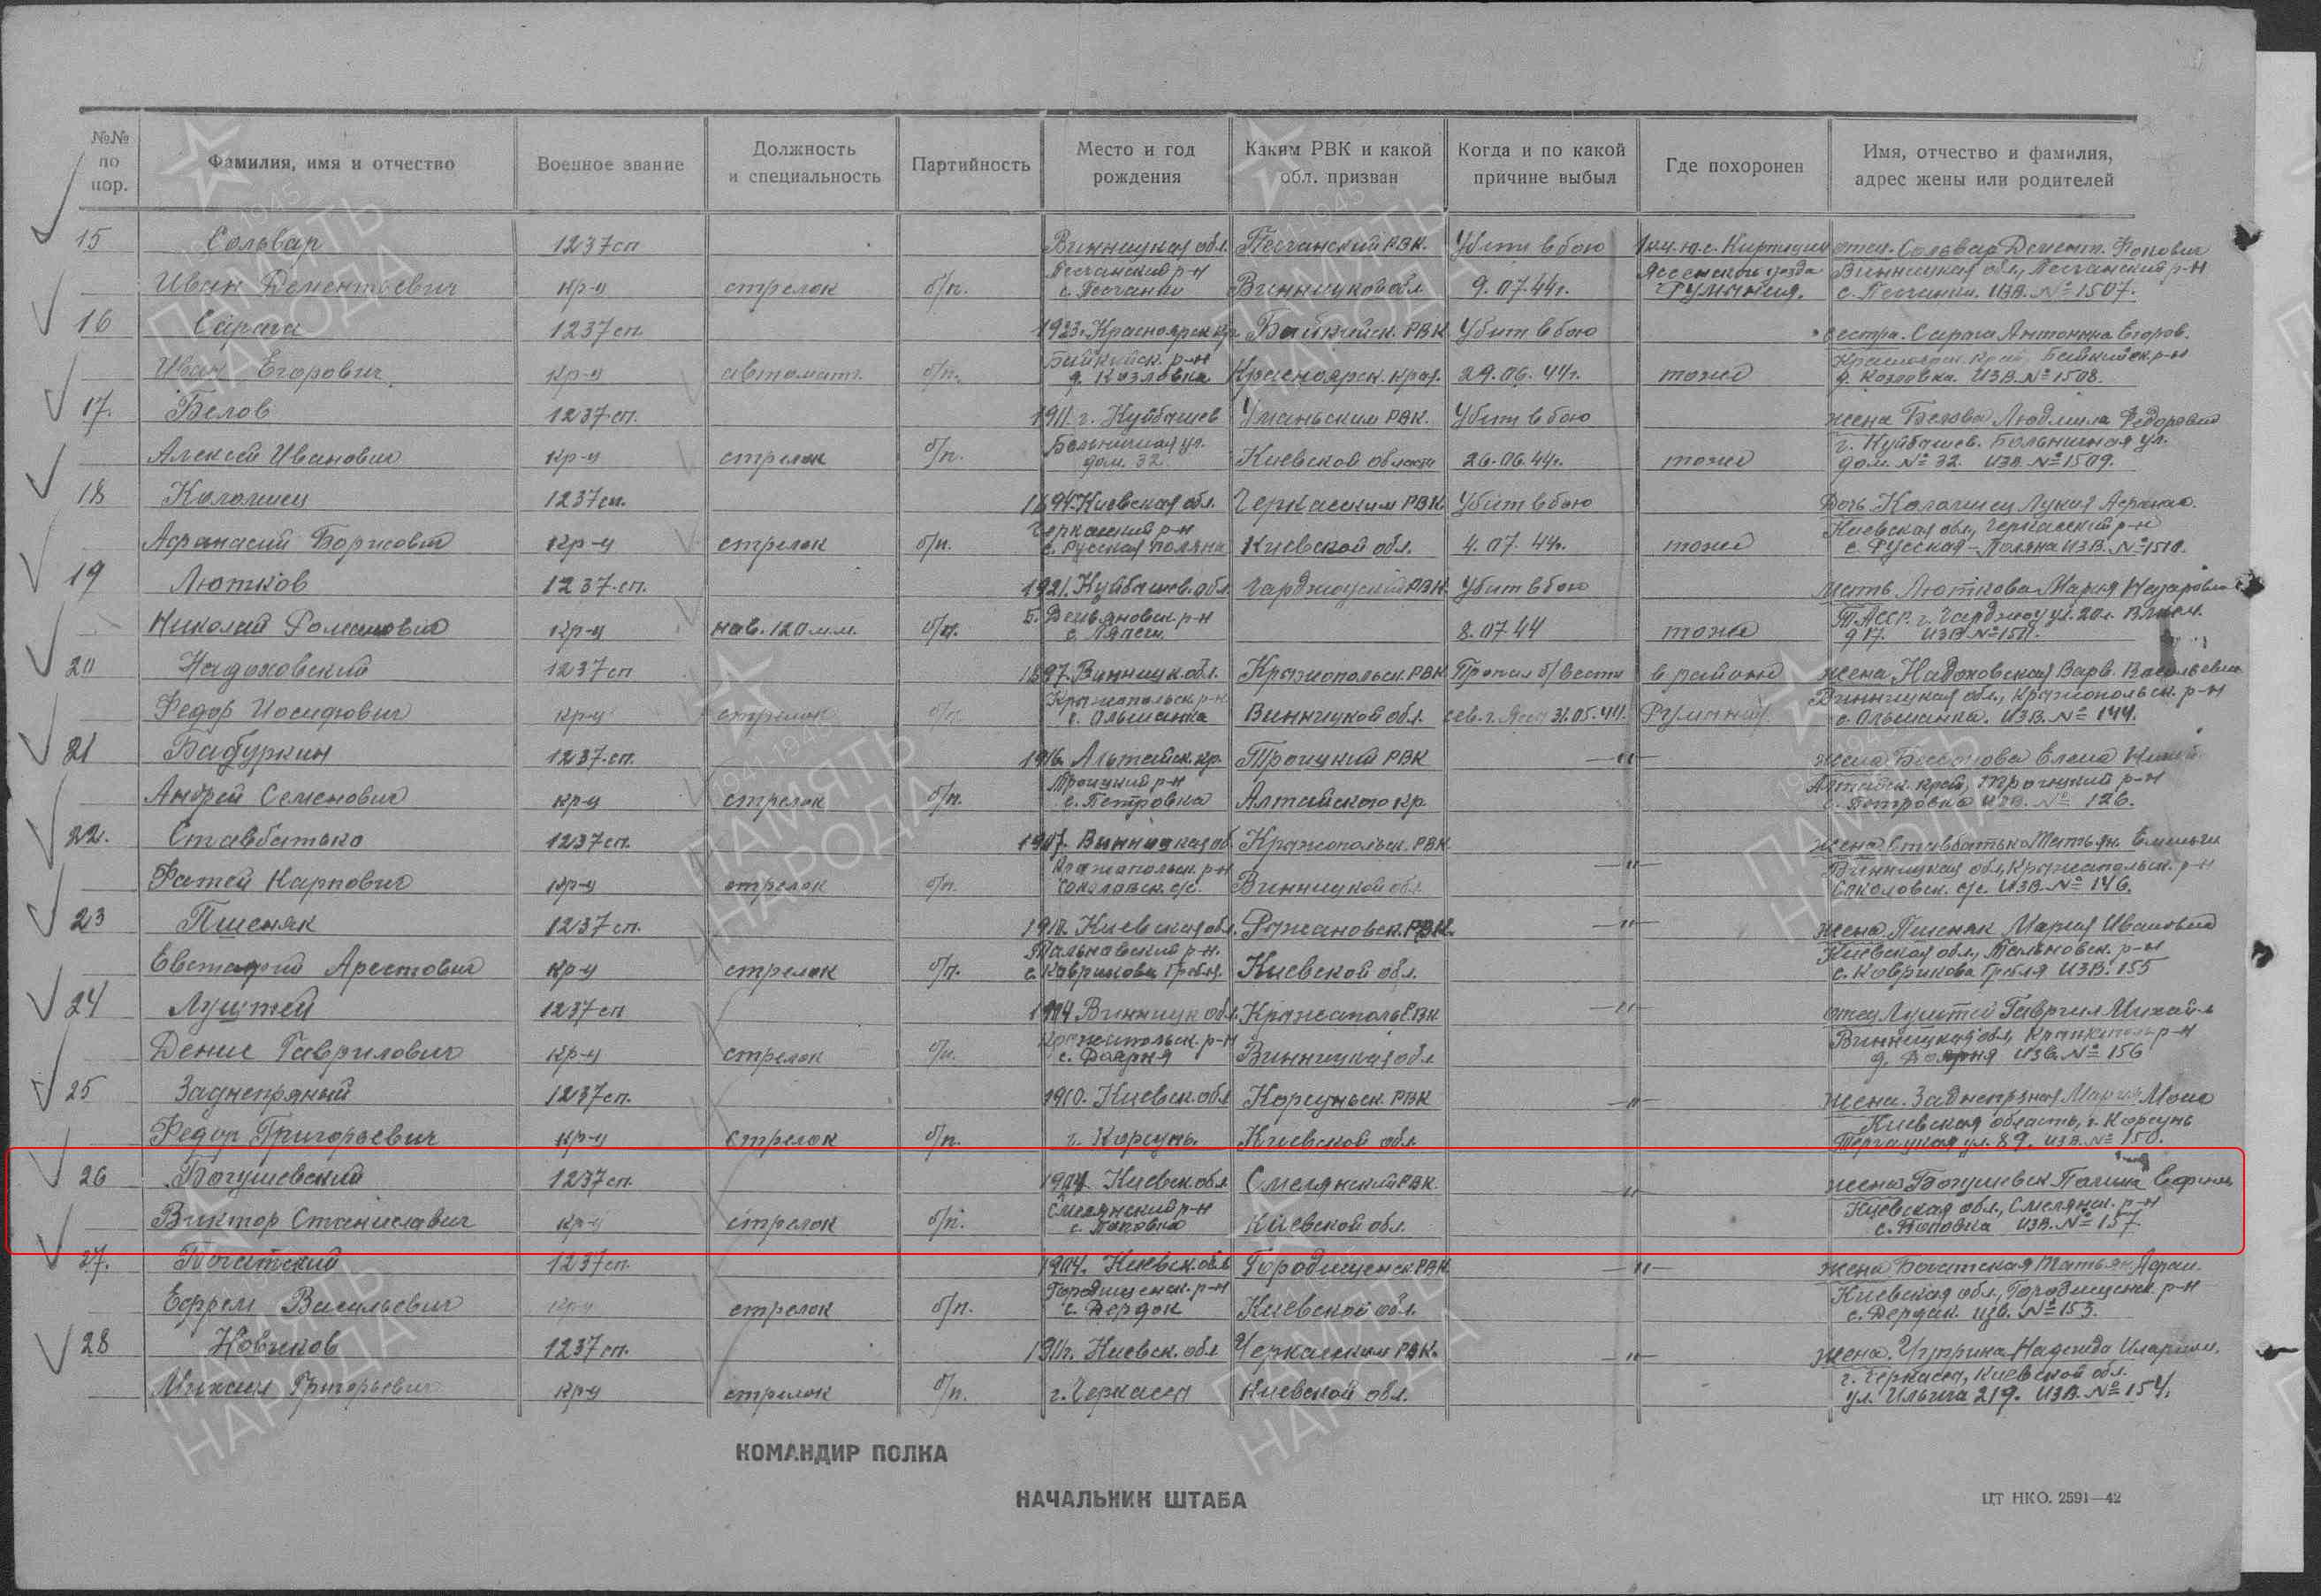 №№ по пор. Фамилия, имя и отчество Военное звание Должность и специальность Партийность Место и год рождения Каким РВК и какой обл. призван Когда и по какой причине выбыл Где похоронен Имя, отчество и фамилия, адрес жены или родителей
15 Сольвар 1237сп Винницкая обл. Песчанский РВК. Убит в бою отец. Сольвар Демент.
Песчанский р-н Ясского уезда Винницкая обл., Песчанский р-н
Иван Дементьевич кр-ц стрелок б/п. с. Песчанки Винницкой обл 9.07.44г. Румыния. с. Песчанки. ИЗВ. №1507.
16 1237сп. 1923г. Красноярск кр. РВК Убит в бою сестра. Антонина Егоров.
Красноярск. край,
Иван Егорович кр-ц автомат. б/п. д. Козловка Красноярск. края. 29.06.44г. тоже д. Козловка. ИЗВ. №1508.
17. Белов 1237сп. 1911. г. Куйбышев Уманьским РВК. Убит в бою жена Белова Людмила Федоровна
Больничная ул. г. Куйбышев. Больничная ул.
Алексей Иванович кр-ц стрелок б/п. дом. 32. Киевской области 26.06.44г. тоже дом. № 32. ИЗВ. №1509.
18 Коломиец 1237сп. 1894 Киевская обл. Черкасским РВК Убит в бою Дочь Коломиец Афанас.
Черкасский р-н Киевская обл., Черкасский р-н
Афанасий Борисович кр-ц стрелок б/п. с. Русская поляна Киевской обл. 4.07.44г. тоже с. Русская-Поляна ИЗВ. №1510.
19 Лютков 1237.сп. 1921. Куйбышев. обл. Чарджоуский РВК. Убит в бою Мать Люткова Мария Назаровна
р-н Т.АССР. г. Чарджоу ул. 20
Николай Романович кр-ц нав. 120 м.м. б/п. 8.07.44 тоже ИЗВ №1511.
20 Надоховский 1237сп 1897. Винницк. обл. Крыжопольск. РВК Пропал б/вести в районе жена Надоховская Варв. Васильевна
Крыжопольск. р-н Винницкая обл., Крыжопольск. р-н
Федор Иосифович кр-ц стрелок б/п. с. Ольшанка Винницкой обл. сев. г. Яссы 31.05.44. Румыния с. Ольшанка. ИЗВ. № 144.
21 Бабуркин 1237.сп. 1916. Алтайск. кр. Троицкий РВК —"— жена Елена
Троицкий р-н Алтайск. край, Троицкий р-н
Андрей Семенович кр-ц стрелок б/п. с. Петровка Алтайского кр с. Петровка ИЗВ. № 126.
22. Ставбатько 1237сп. 1907. Винницкая об. Крыжопольск. РВК —"— жена Ставбатько Татьян.
Крыжопольск. р-н Винницкая обл, Крыжопольск. р-н
Фатей Карпович кр-ц стрелок б/п. Соколовск. с/с. Винницкой обл. Соколовск. с/с. ИЗВ. № 146.
23 Пшеняк 1237сп. Киевская обл. РВК. —"— жена Пшеняк Мария Ивановна
Тальновский р-н. Киевская обл., Тальновск. р-н
Арестович кр-ц стрелок б/п. Киевской обл. ИЗВ. 155
24 Луштей 1237сп Винницк обл. Крыжополь РВК —"— отец Луштей Гаврил Михайл
р-н Винницкая обл, р-н
Денис Гаврилович кр-ц стрелок б/п. Винницкая обл ИЗВ. № 156
25 Заднепряный 1237сп. 1910. Киевск. обл Корсуньск. РВК —"— жена. Заднепряная Мария
Киевская область, г. Корсунь
Федор Григорьевич кр-ц стрелок б/п. г. Корсунь. Киевской обл. ул. 89. ИЗВ. № 150.
26 Богушевский 1237сп. 1904. Киевск. обл. Смелянский РВК —"— жена Богушевск Ефим
Смелянский р-н Киевская обл., Смелянск. р-н
Виктор Станиславич кр-ц стрелок б/п. с. Поповка Киевской обл. с. Поповка ИЗВ. № 157.
27. Богатский 1237сп. 1904. Киевск. обл Городищенск РВК —"— жена Богатская Татьян.
Городищенск. р-н Киевская обл., Городищенск. р-н
Ефрем Васильевич кр-ц стрелок б/п. Киевской обл. изв. № 153.
28 Новиков 1237сп. Киевск. обл Черкасским РВК. —"— жена Чуприна Надежда
г. Черкассы, Киевской обл.
Михаил Григорьевич кр-ц стрелок б/п. г. Черкассы Киевской обл. ул. Ильича 219. ИЗВ. № 154.
КОМАНДИР ПОЛКА
НАЧАЛЬНИК ШТАБА
ЦТ НКО. 2591—42
1941-1945
ПАМЯТЬ
НАРОДА